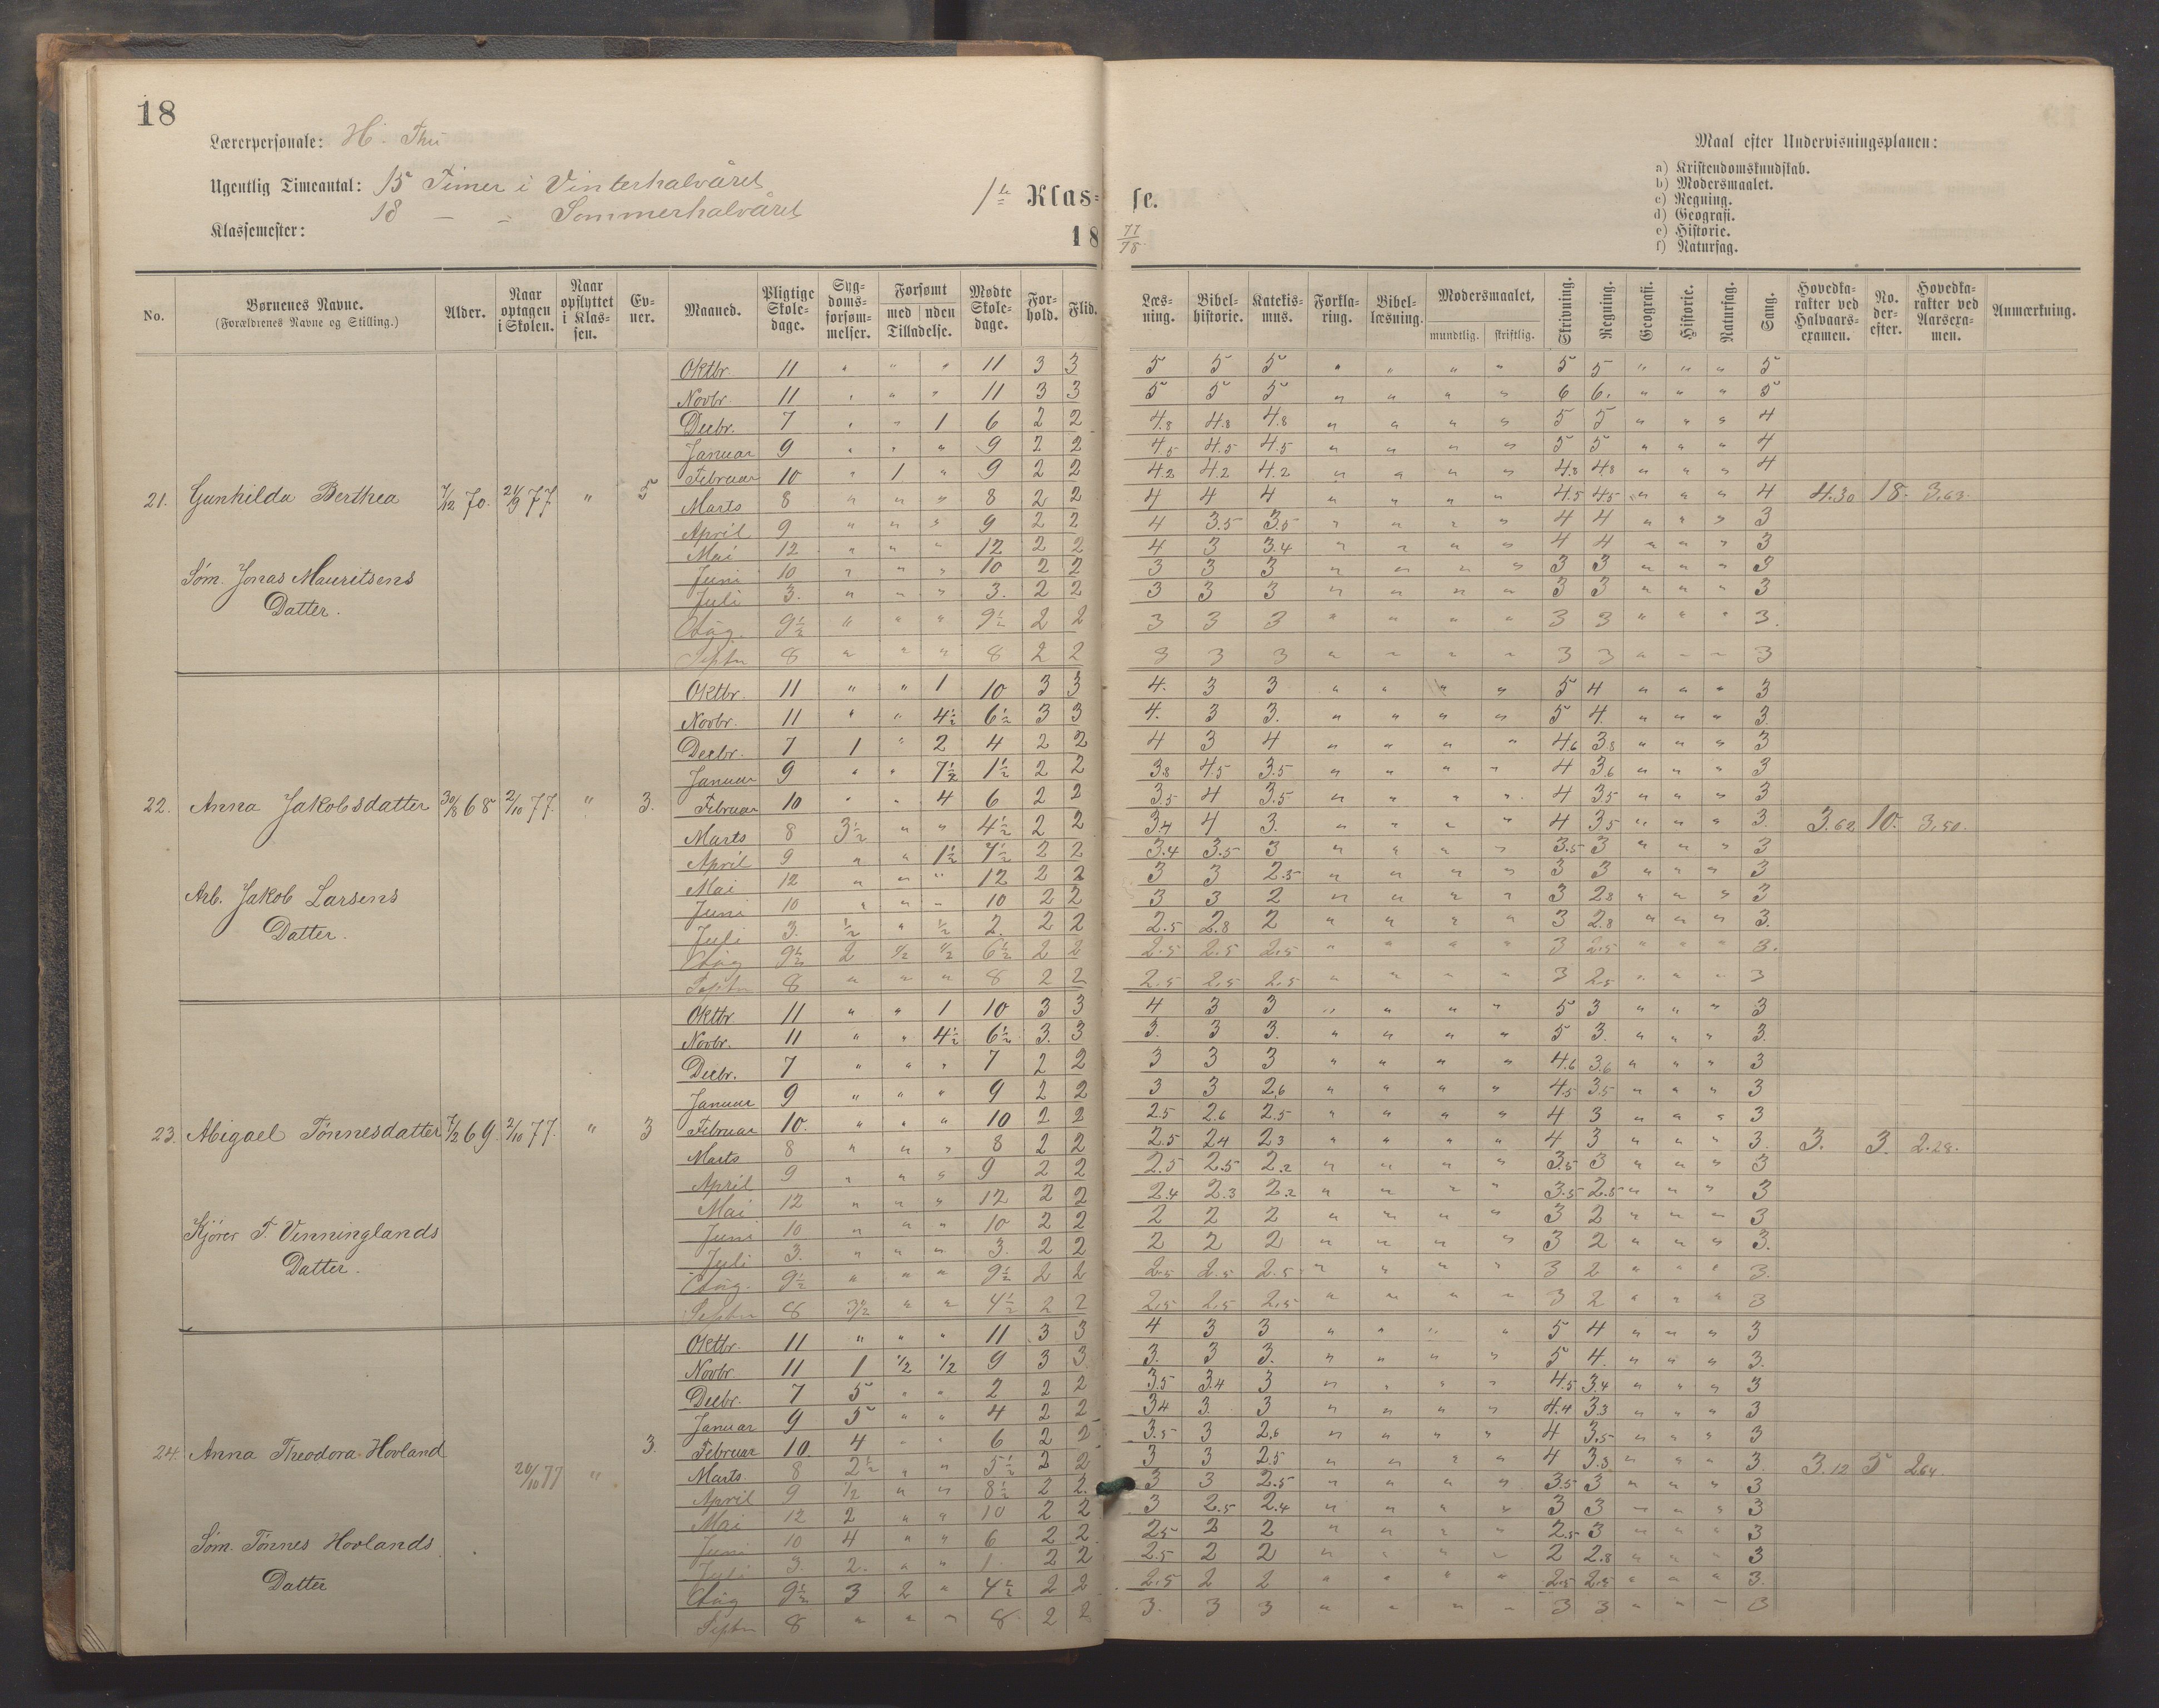 18
Lærerpersonale: H. Thu
Ugentlig Timeantal: 15 Timer i Vinterhalvåret
18 — " Sommerhalvåret
1ste Klasse.
Klassemester:
18 77/78.
Maal efter Undervisningsplanen:
a) Kristendomskundskab.
b) Modersmaalet.
c) Regning.
d) Geografi.
e) Historie.
f) Naturfag.
No. | Børnenes Navne. (Forældrenes Navne og Stilling.) | Alder. | Naar optagen i Skolen. | Naar opflyttet i Klassen. | Evner. | Maaned. | Pligtige Skoledage. | Sygdomsforsømmelser. | Forsømt med Tilladelse. | Forsømt uden Tilladelse. | Mødte Skoledage. | Forhold. | Flid. | Læsning. | Bibelhistorie. | Katekismus. | Forklaring. | Bibellæsning. | Modersmaalet, mundtlig. | skriftlig. | Skrivning. | Regning. | Geografi. | Historie. | Naturfag. | Sang. | Hovedkarakter ved Halvaarsexamen. | No. derefter. | Hovedkarakter ved Aarsexamen. | Anmærkning.
21. Gunhilda Berthea 7/12 70. 21/9 77. " 5 4.30 18. 3.63.
Søm. Jonas Mauritsens
Datter.
Oktbr. 11 " " " 11 3 3 5 5 5 " " " " 5 5 " " " 5
Novbr. 11 " " " 11 3 3 5 5 5 " " " " 6 6. " " " 5
Decbr. 7 " " 1 6 2 2 4.8 4.8 4.8 " " " " 5 5 " " " 4
Januar 9 " " " 9 2 2 4.5 4.5 4.5 " " " " 5 5 " " " 4
Februar 10 " 1 " 9 2 2 4.2 4.2 4.2 " " " " 4.8 4.8 " " " 4
Marts 8 " " " 8 2 2 4 4 4 " " " " 4.5 4.5 " " " 4
April 9 " " " 9 2 2 4 3.5 3.5 " " " " 4 4 " " " 3
Mai 12 " " " 12 2 2 4 3 3.4 " " " " 4 4 " " " 3
Juni 10 " " " 10 2 2 3 3 3 " " " " 3 3 " " " 3
Juli 3. " " " 3. 2 2 3 3 3 " " " " 3 3 " " " 3
Aug. 9½ " " " 9½ 2 2 3 3 3 " " " " 3 3 " " " 3.
Septbr 8 " " " 8 2 2 3 3 3 " " " " 3 3 " " " 3
22. Anna Jakobsdatter 30/8 68 2/10 77. " 3. 3.62 10. 3.50.
Arb. Jakob Larsens
Datter.
Oktbr. 11 " " 1 10 3 3 4. 3 3 " " " " 5 4 " " " 3
Novbr. 11 " " 4½ 6½ 3 3 4. 3 3. " " " " 5 4. " " " 3.
Decbr. 7 1 " 2 4 2 2 4 3 4 " " " " 4.6 3.8 " " " 3
Januar 9 " " 7½ 1½ 2 2 3.8 4.5 3.5 " " " " 4 3.6 " " " 3
Februar 10 " " 4 6 2 2 3.5 4 3.5 " " " " 4 3.5 " " " 3
Marts 8 3½ " " 4½ 2 2 3.4 4 3. " " " " 4 3.5 " " " 3
April 9 " " 1½ 7½ 2 2 3.4 3.5 3 " " " " 3.5 3 " " " 3
Mai 12 " " " 12 2 2 3 3 2.5 " " " " 3 3 " " " 3
Juni 10 " " " 10 2 2 3 3 2 " " " " 3 2.8 " " " 3
Juli 3. ½ " ½ 2. 2 2 2.5 2.8 2 " " " " 3 2.8 " " " 3.
Aug 9½ 2 ½ ½ 6½ 2 2 2.5 2.5 2.5 " " " " 3 2.5 " " " 3.
Septbr 8 " " " 8 2 2 2.5 2.5 2.5 " " " " 3 2.5 " " " 3
23. Abigael Tønnesdatter 7/2 69. 2/10 77. " 3 3. 3. 2.28.
Kjører T. Venninglands
Datter.
Oktbr. 11 " " 1 10 3 3 4 3 3 " " " " 5 3 " " " 3
Novbr. 11 " " 4½ 6½ 3. 3 3. 3 3. " " " " 5 3. " " " 3.
Decbr. 7 " " " 7 2 2 3 3 3 " " " " 4.6 3.6 " " " 3
Januar 9 " " " 9 2 2 3 3 2.6 " " " " 4.5 3.5 " " " 3
Februar 10. " " " 10 2 2 2.5 2.6 2.5 " " " " 4 3 " " " 3
Marts 8 " " " 8 2 2 2.5 2.4 2.3 " " " " 4 3 " " " 3.
April 9 " " " 9 2 2 2.5 2.5 2.2 " " " " 3.5 3 " " " 3
Mai 12 " " " 12 2 2 2.4 2.3 2.2 " " " " 3.5 2.5 " " " 3
Juni 10 " " " 10 2 2 2 2 2 " " " " 3 2 " " " 3
Juli 3. " " " 3. 2 2 2 2 2 " " " " 3 2 " " " 3.
Aug. 9½ " " " 9½ 2 2 2.5 2.5 2.5 " " " " 3 2 " " " 3.
Septbr 8 3½ " " 4½ 2 2 2.5 2.5 2.5 " " " " 3 2 " " " 3
24. Anna Theodora Hovland 26/10 77 " 3. 3.12 5 2.64.
Søm. Tønnes Hovlands
Datter
Oktbr. 11 " " " 11 3 3 4 3 3 " " " " 5 4 " " " 3
Novbr 11 1 ½ ½ 9 3 3 3. 3 3. " " " " 5 4. " " " 3.
Decbr. 7 5 " " 2 2 2 3.5 3.4 3 " " " " 4.5 3.4 " " " 3
Januar 9 5 " " 4 2 2 3.4 3. 3 " " " " 4.4 3.3 " " " 3
Februar 10. 4 " " 6 2 2 3.5 3 2.6 " " " " 4 3.5 " " " 3
Marts. 8 2½ " " 5½ 2 2 3 3 2.5 " " " " 4 3.3 " " " 3.
April 9 ½ " " 8½ 2 2. 3 3 2.5 " " " " 3.5 3 " " " 3
Mai 12 2 " " 10 2 2 3 2.5 2.4 " " " " 3 3 " " " 3
Juni 10 4 " " 6 2 2 2.5 2 2 " " " " 2.5 3 " " " 3
Juli 3. 2. " " 1. 2 2 2.5 2 2 " " " " 2 2.8 " " " 3
Aug 9½ 3 2 " 4½ 2 2 2.5 2 2 " " " " 2.5 2.5 " " " 3.
Septbr 8 " " " 8. 2 2 3. 3 3 " " " " 3 3 " " " 3